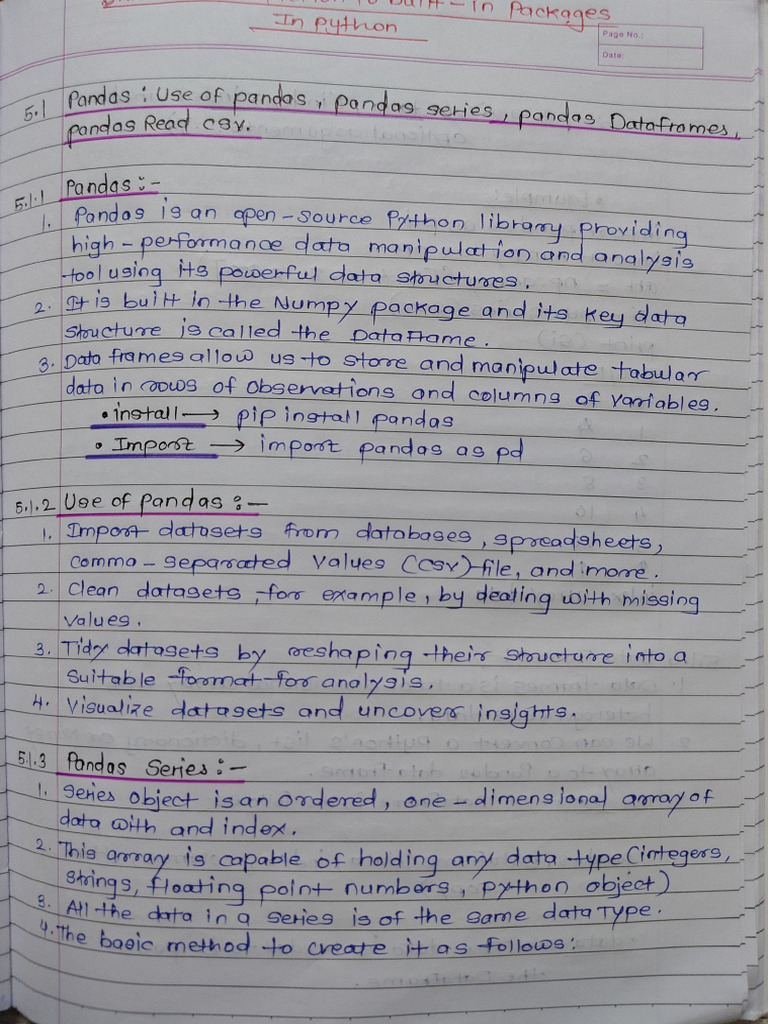 Built-in Packages
In Python
Page No.:
Date:
5.1 Pandas : Use of pandas, pandas series, pandas Dataframes,
pandas Read csv.
5.1.1 Pandas :-
1. Pandas is an open-source Python library providing
high-performance data manipulation and analysis
tool using its powerful data structures.
2. It is built in the Numpy package and its key data
structure is called the DataFrame.
3. Data frames allow us to store and manipulate tabular
data in rows of observations and columns of variables.
• install → pip install pandas
• Import → import pandas as pd
5.1.2 Use of Pandas :-
1. Import datasets from databases, spreadsheets,
comma-separated values (csv)-file, and more.
2. Clean datasets, for example, by dealing with missing
values.
3. Tidy datasets by reshaping their structure into a
suitable format for analysis.
4. Visualize datasets and uncover insights.
5.1.3 Pandas Series :-
1. Series object is an ordered, one-dimensional array of
data with and index.
2. This array is capable of holding any data type (integers,
strings, floating point numbers, python object)
3. All the data in a series is of the same data Type.
4. The basic method to create it as follows: